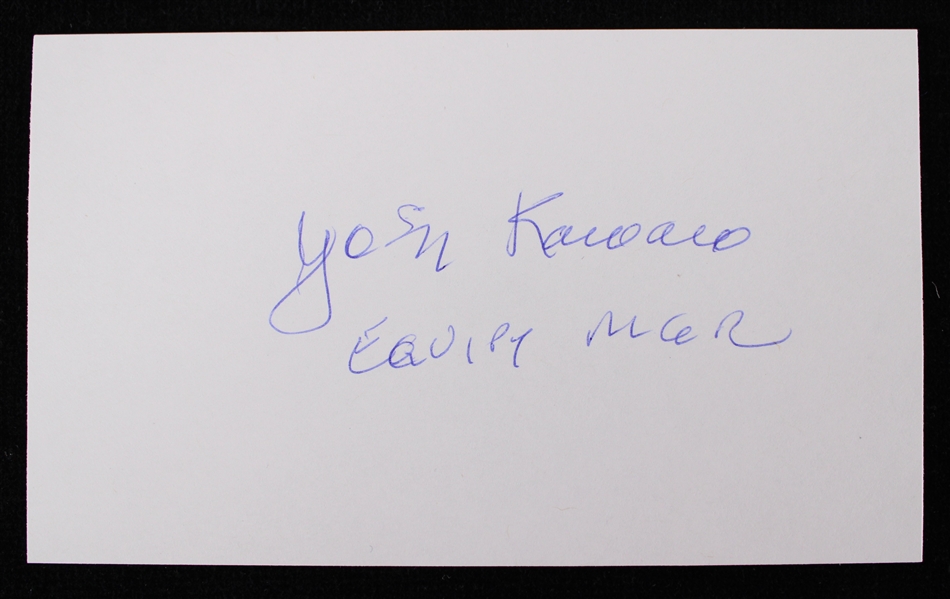 Yosh Kawano
EQUIPT MGR